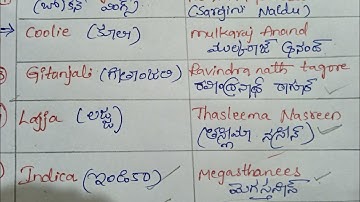 (Sarojini Naidu)
→ Coolie (ಕೂಲಿ) mulkaraj Anand
ಮುಲ್ಕರಾಜ್ ಆನಂದ್
Gitanjali (ಗೀತಾಂಜಲಿ) Ravindra nath tagore
ರವೀಂದ್ರನಾಥ್ ಠಾಗೂರ್
Lajja (ಲಜ್ಜ) Thasleema Nasreen
(ತಸ್ಲೀಮಾ ನಸ್ರೀನ್)
Indica (ಇಂಡಿಕಾ) Megasthanees
ಮೆಗಸ್ತನೀಸ್